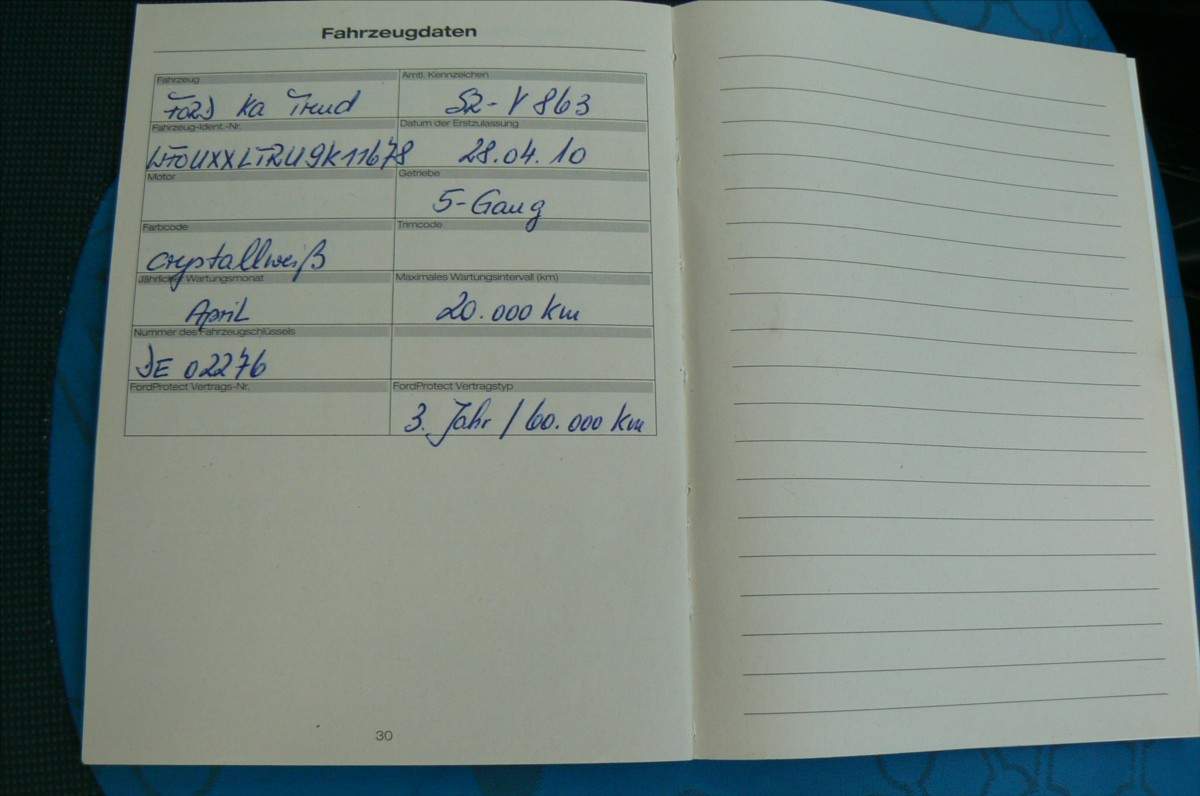 Fahrzeugdaten
Fahrzeug
Amtl. Kennzeichen
FORD Ka Trend
SR-V 863
Fahrzeug-Ident.-Nr.
Datum der Erstzulassung
WFOUXXLTRU9K11678
28.04.10
Motor
Getriebe
5-Gang
Farbcode
Trimcode
crystallweiß
Jährlicher Wartungsmonat
Maximales Wartungsintervall (km)
April
20.000 km
Nummer des Fahrzeugschlüssels
DE 02276
FordProtect Vertrags-Nr.
FordProtect Vertragstyp
3. Jahr / 60.000 km
30